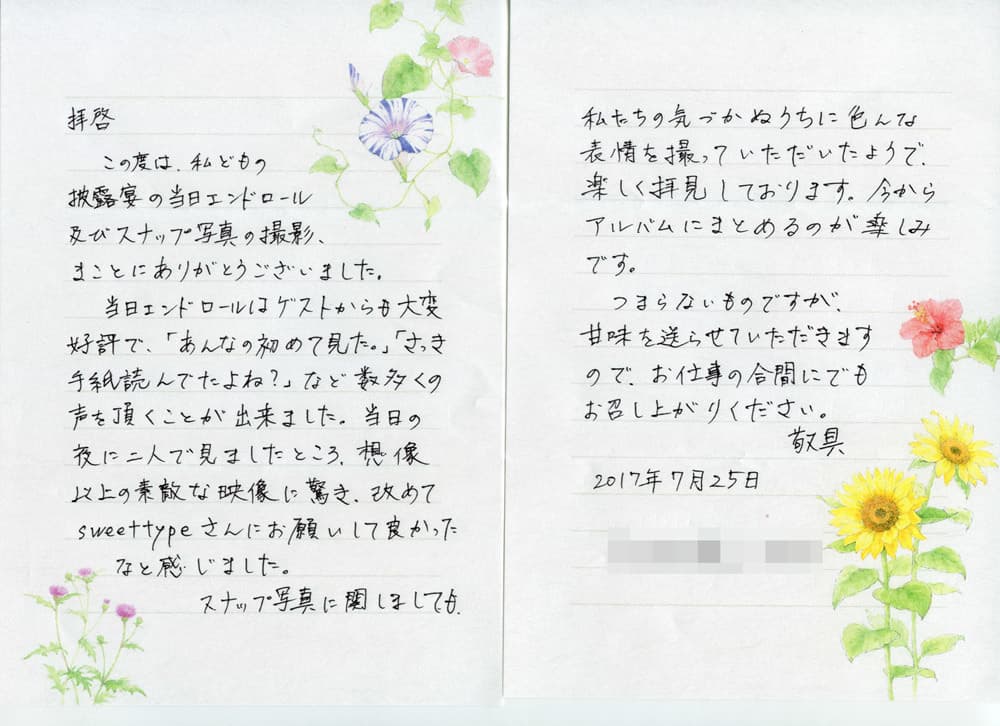 拝啓
この度は、私どもの
披露宴の当日エンドロール
及びスナップ写真の撮影、
まことにありがとうございました。
当日エンドロールはゲストからも大変
好評で、「あんなの初めて見た。」「さっき
手紙読んでたよね?」など数多くの
声を頂くことが出来ました。当日の
夜に二人で見ましたところ、想像
以上の素敵な映像に驚き、改めて
sweettypeさんにお願いして良かった
なと感じました。
スナップ写真に関しましても、
私たちの気づかぬうちに色んな
表情を撮っていただいたようで、
楽しく拝見しております。今から
アルバムにまとめるのが楽しみ
です。
つまらないものですが、
甘味を送らせていただきます
ので、お仕事の合間にでも
お召し上がりください。
敬具
2017年7月25日